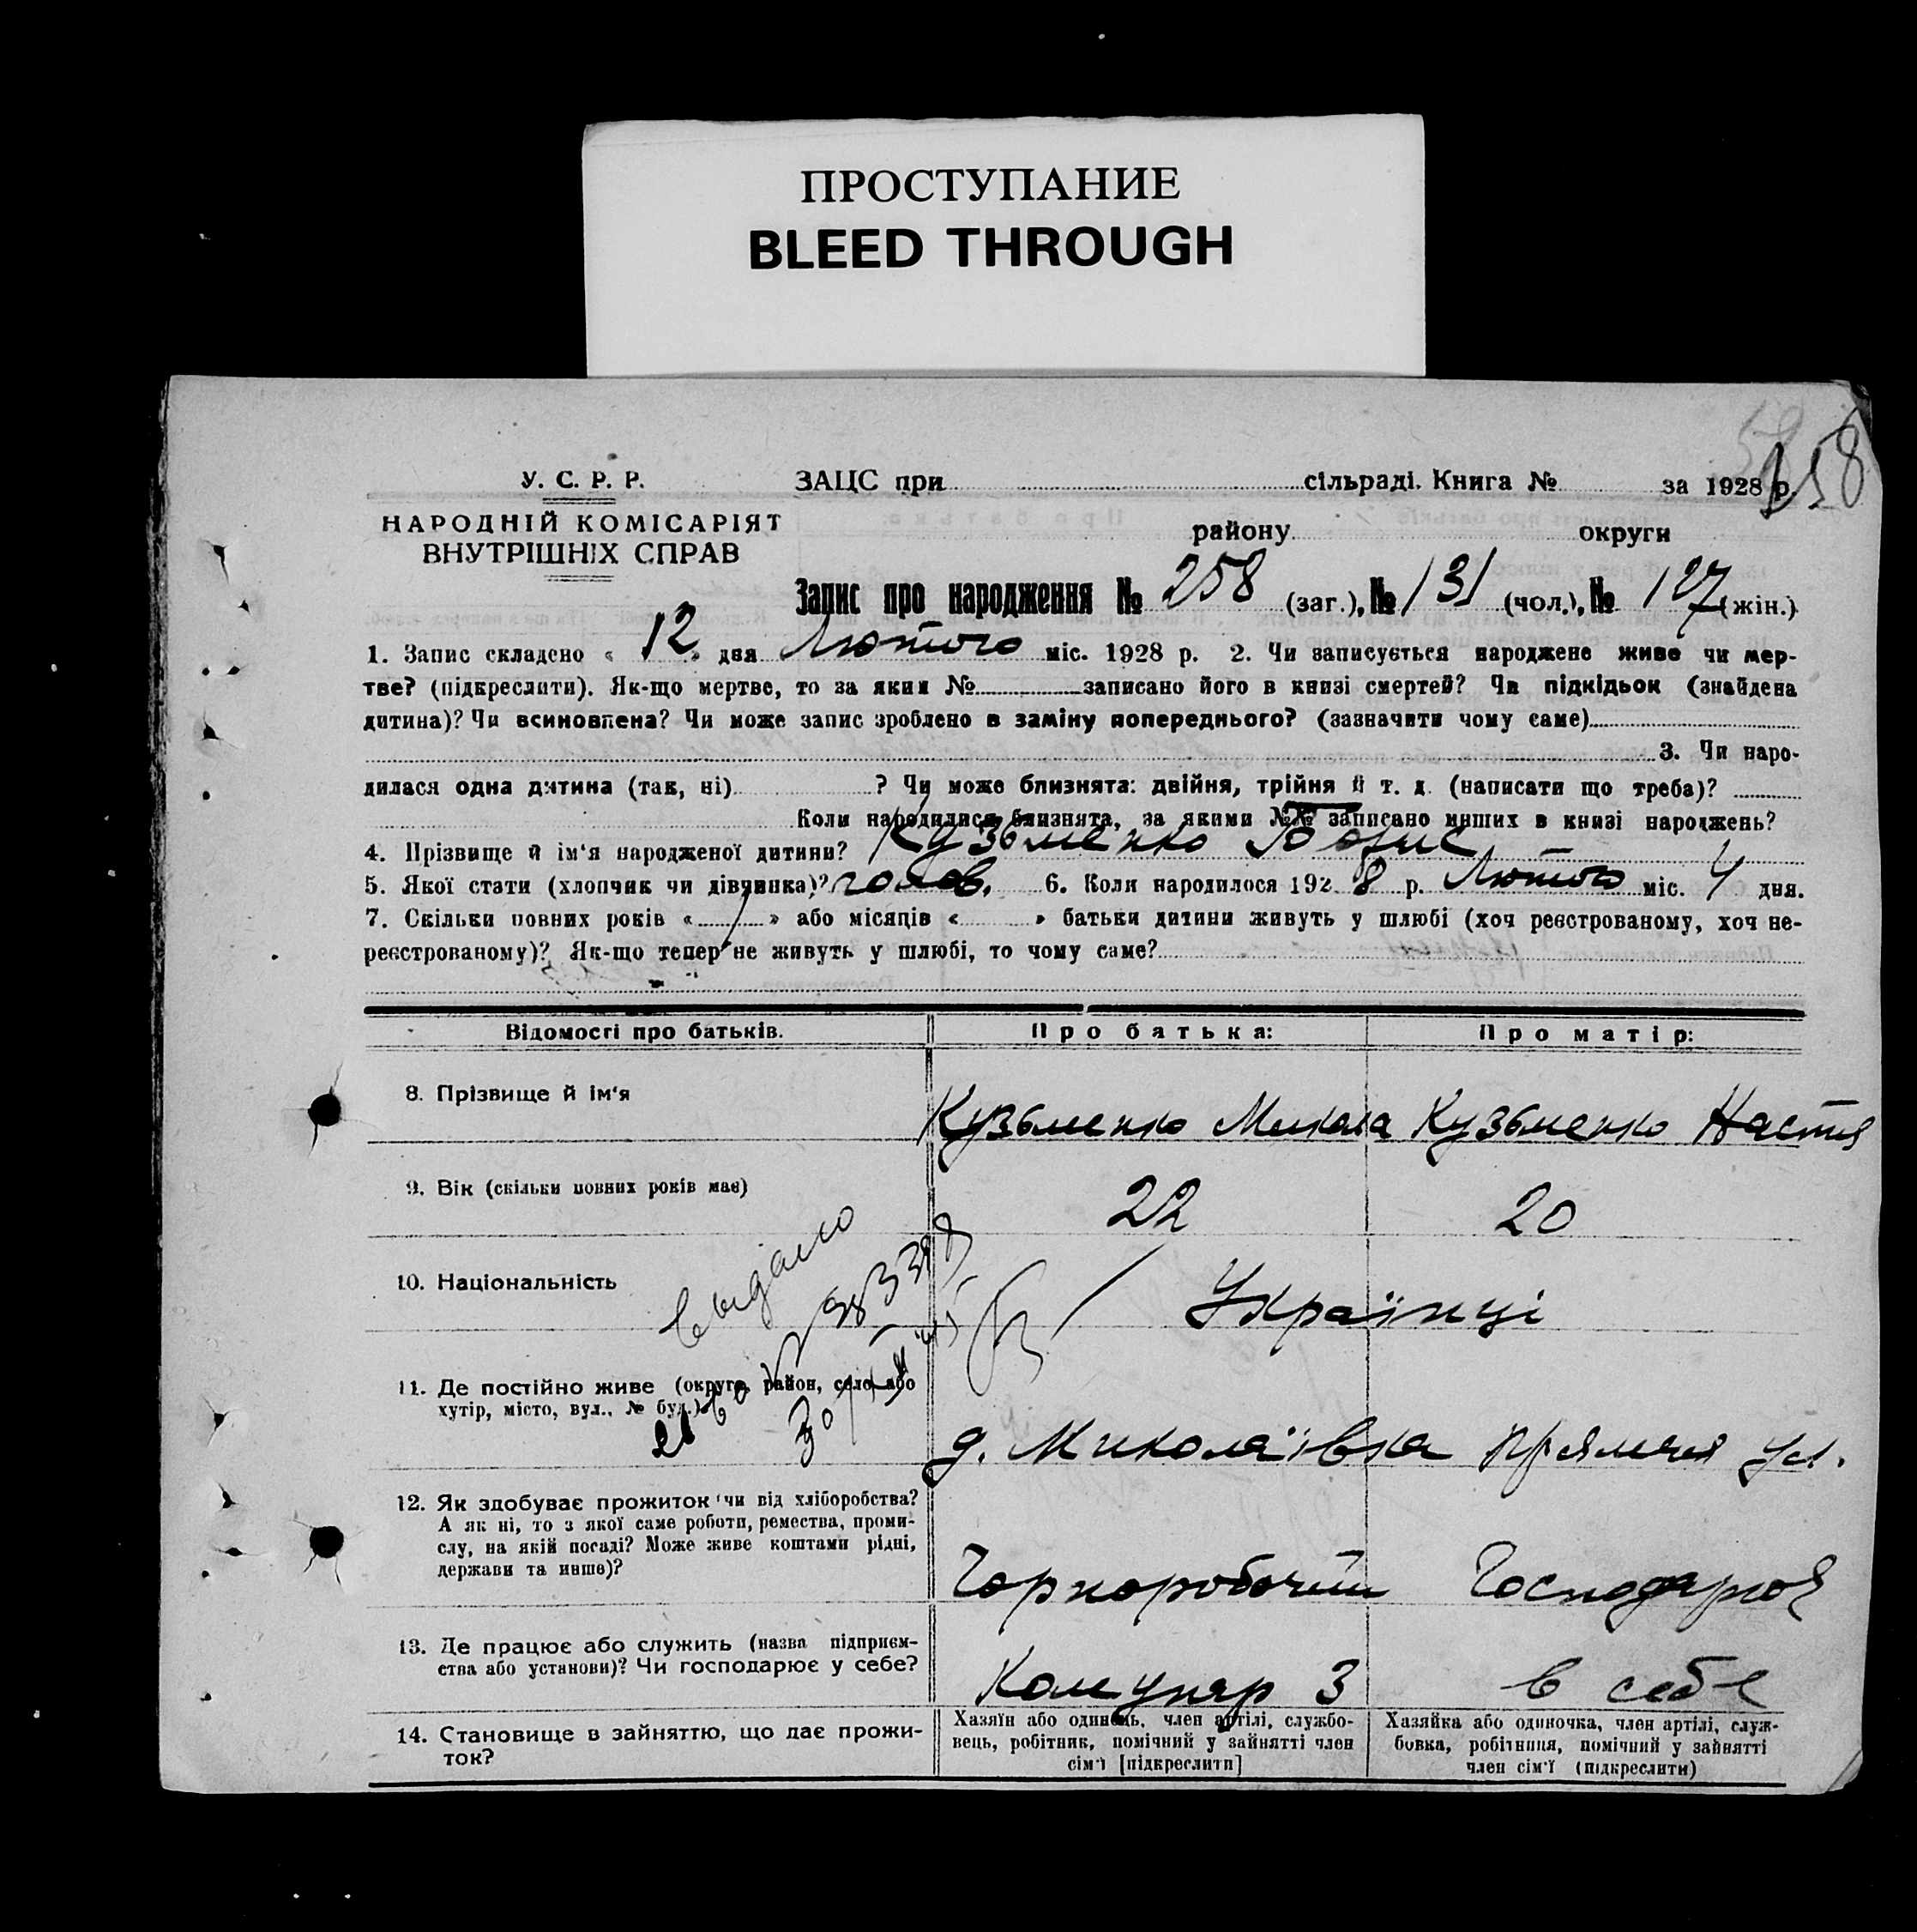 ПРОСТУПАНИЕ
BLEED THROUGH
58
158
У. С. Р. Р.
НАРОДНІЙ КОМІСАРІЯТ
ВНУТРІШНІХ СПРАВ
ЗАЦС при сільраді. Книга № за 1928 р.
району округи
Запис про народження № 258 (заг.), № 131 (чол.), № 127 (жін.)
1. Запис складено « 12 » дня Лютого міс. 1928 р. 2. Чи записується народжене живе чи мер-
тве? (підкреслити). Як-що мертве, то за яким № записано його в книзі смертей? Чи підкідьок (знайдена
дитина)? Чи всиновлена? Чи може запис зроблено в заміну попереднього? (зазначити чому саме)
3. Чи наро-
дилася одна дитина (так, ні) ? Чи може близнята: двійня, трійня й т. д. (написати що треба)?
Коли народилися близнята, за якими №№ записано инших в книзі народжень?
4. Прізвище й ім'я народженої дитини? Кузьменко Борис
5. Якої стати (хлопчик чи дівчинка)? 6. Коли народилося 1928 р. Лютого міс. 4 дня.
7. Скільки повних років « 1 » або місяців « » батьки дитини живуть у шлюбі (хоч реєстрованому, хоч не-
реєстрованому)? Як-що тепер не живуть у шлюбі, то чому саме?
Відомості про батьків. Про батька: Про матір:
8. Прізвище й ім'я Кузьменко Микола Кузьменко Настя
9. Вік (скільки повних років має) 22 20
10. Національність Українці
видано
11. Де постійно живе (округа, район, село або
хутір, місто, вул., № буд.) д. Миколаївка Прямая ул.
12. Як здобуває прожиток чи від хліборобства?
А як ні, то з якої саме роботи, ремества, проми-
слу, на якій посаді? Може живе коштами рідні,
держави та инше)? Чорноробочий Господарює
13. Де працює або служить (назва підприєм-
ства або установи)? Чи господарює у себе? Комунар 3 в себе
14. Становище в зайняттю, що дає прожи-
ток?
Хазяїн або одинець, член артілі, службо-
вець, робітник, помічний у зайнятті член
сім'ї [підкреслити]
Хазяйка або одиночка, член артілі, служ-
бовка, робітниця, помічний у зайнятті
член сім'ї (підкреслити)